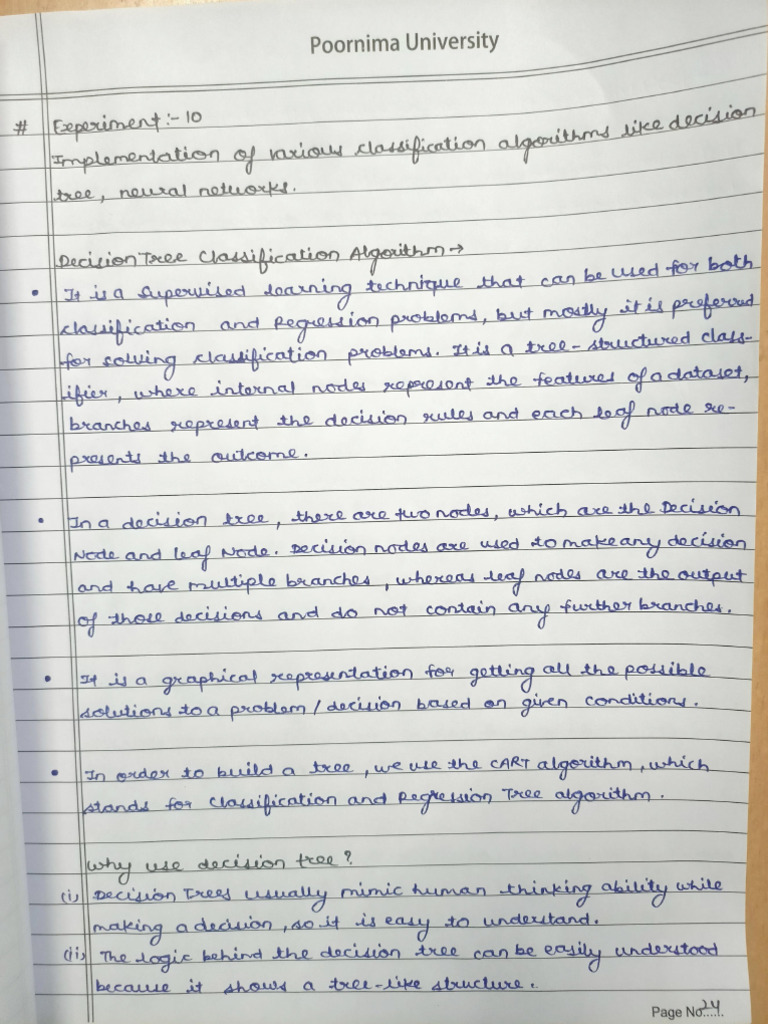 Poornima University
# Experiment:- 10
Implementation of various classification algorithms like decision
tree, neural networks.
Decision Tree Classification Algorithm →
• It is a Supervised learning technique that can be used for both
classification and Regression problems, but mostly it is preferred
for solving classification problems. It is a tree-structured class-
ifier, where internal nodes represent the features of a dataset,
branches represent the decision rules and each leaf node re-
presents the outcome.
• In a decision tree, there are two nodes, which are the Decision
Node and leaf Node. Decision nodes are used to make any decision
and have multiple branches, whereas leaf nodes are the output
of those decisions and do not contain any further branches.
• It is a graphical representation for getting all the possible
solutions to a problem/decision based on given conditions.
• In order to build a tree, we use the CART algorithm, which
stands for Classification and Regression Tree algorithm.
Why use decision tree?
(i) Decision Trees usually mimic human thinking ability while
making a decision, so it is easy to understand.
(ii) The logic behind the decision tree can be easily understood
because it shows a tree-like structure.
Page No. 24